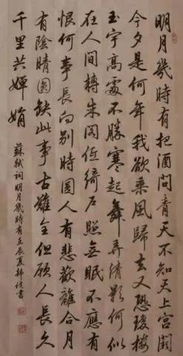 明月幾時有把酒问青天不知天上宫阙
今夕是何年我欲乘風歸去又恐瓊樓
玉宇高處不勝寒起舞弄清影何似
在人間轉朱閣低綺户照無眠不應有
恨何事長向别時圆人有悲歡離合月
有陰晴圆缺此事古難全但願人長久
千里共嬋娟
蘇軾词明月幾時有